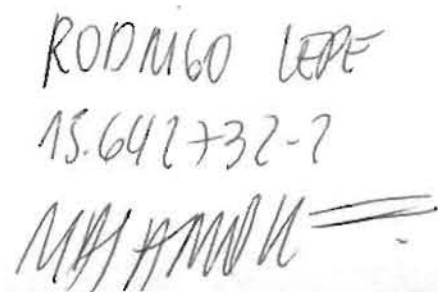 RODRIGO LEPE
15.642732-2